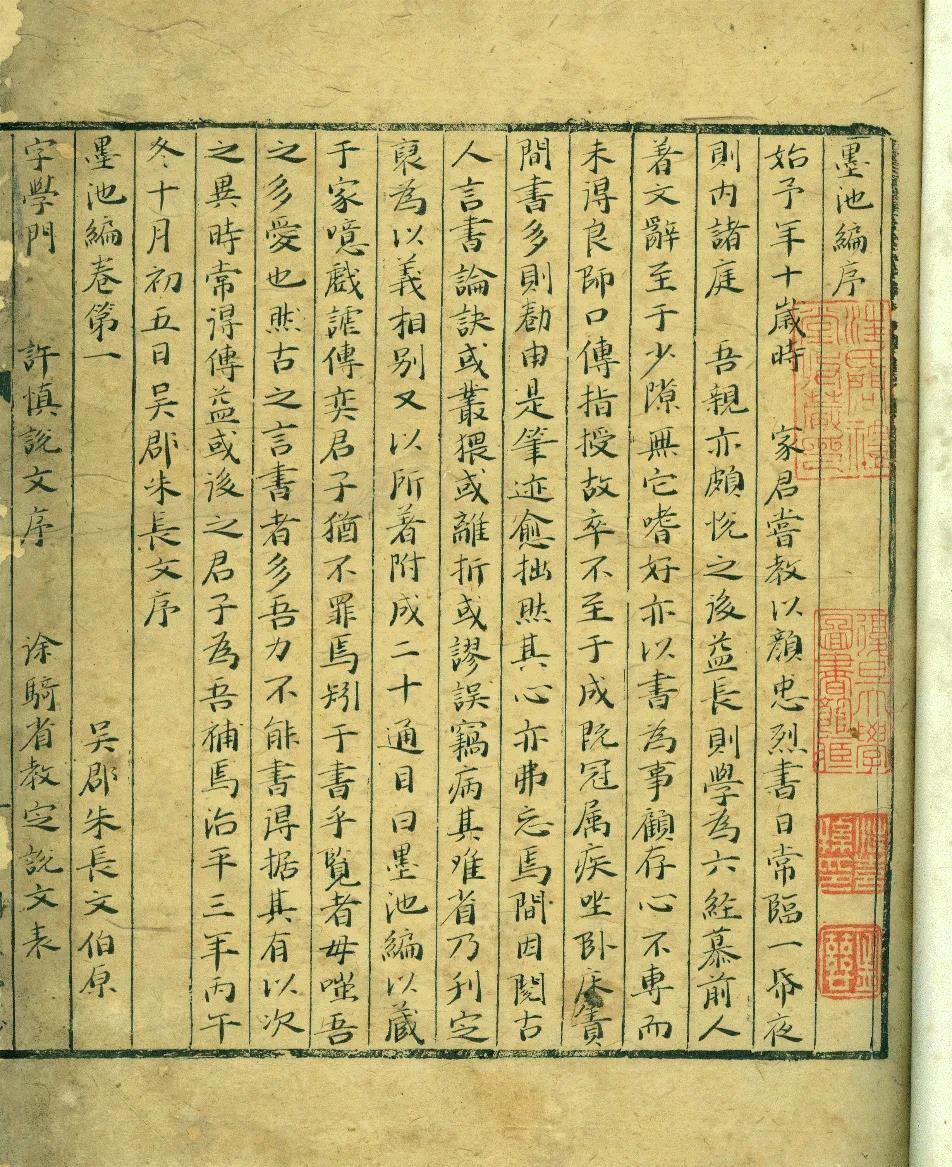 墨池編序
始予年十歲時　家君嘗教以顏忠烈書日常臨一帋夜
則內諸庭　吾親亦頗悅之後益長則學為六経慕前人
著文辭至于少隙無它嗜好亦以書為事顧存心不専而
未得良師口傳指授故卒不至于成旣冠属疾坐卧床簀
間書多則勌由是筆迹愈拙然其心亦弗忘焉間因閱古
人言書論訣或叢猥或離析或謬誤竊病其难省乃刋定
裒為以義相別又以所著附成二十通目曰墨池編以藏
于家噫戲謔傳奕君子猶不罪焉矧于書乎覧者毋嗤吾
之多愛也然古之言書者多吾力不能書得据其有以次
之異時常得傳益或後之君子為吾補焉治平三年丙午
冬十月初五日吴郡朱長文序
墨池編卷第一
吴郡朱長文伯原
字學門　許慎説文序　徐騎省教定説文表
復旦大學
圖書館